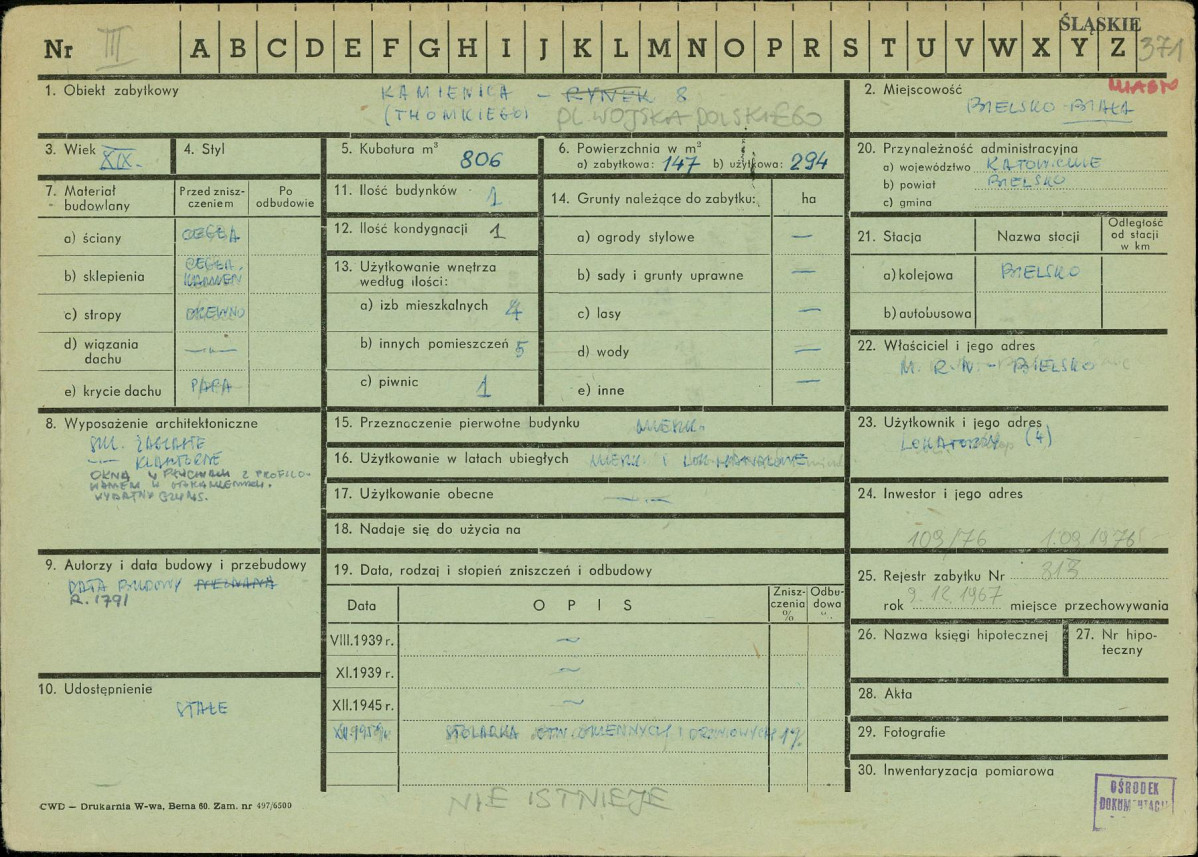 ŚLĄSKIE
Nr III A B C D E F G H I J K L M N O P R S T U V W X Y Z 371
1. Obiekt zabytkowy KAMIENICA – RYNEK 8
(THOMKIEGO) PL. WOJSKA POLSKIEGO
2. Miejscowość MIASTO
BIELSKO-BIAŁA
3. Wiek XIX.
4. Styl
5. Kubatura m³ 806
6. Powierzchnia w m²
a) zabytkowa: 147 b) użytkowa: 294
20. Przynależność administracyjna
a) województwo KATOWICKIE
b) powiat BIELSKO
c) gmina
7. Materiał budowlany
Przed zniszczeniem
Po odbudowie
a) ściany CEGŁA
b) sklepienia CEGŁA, KAMIEŃ
c) stropy DREWNO
d) wiązania dachu —„—
e) krycie dachu PAPA
11. Ilość budynków 1
12. Ilość kondygnacji 1
13. Użytkowanie wnętrza
według ilości:
a) izb mieszkalnych 4
b) innych pomieszczeń 5
c) piwnic 1
14. Grunty należące do zabytku: ha
a) ogrody stylowe —
b) sady i grunty uprawne —
c) lasy —
d) wody —
e) inne —
21. Stacja
Nazwa stacji
Odległość od stacji w km
a) kolejowa BIELSKO
b) autobusowa
22. Właściciel i jego adres
M. R. N. – BIELSKO
8. Wyposażenie architektoniczne
SKL. ŻAGLASTE
—„— KLASZTORNE
OKNA W
WYDATNY GZYMS.
15. Przeznaczenie pierwotne budynku MIESZK.
16. Użytkowanie w latach ubiegłych MIESZK. I
17. Użytkowanie obecne —„—
18. Nadaje się do użycia na
23. Użytkownik i jego adres
LOKATORZY (4)
24. Inwestor i jego adres
109/76 1.03.1976
9. Autorzy i data budowy i przebudowy
DATA BUDOWY NIEZNANA
R. 1791
19. Data, rodzaj i stopień zniszczeń i odbudowy
Data
O P I S
Zniszczenia %
Odbudowa %
VIII.1939 r. ~
XI.1939 r. ~
XII.1945 r. ~
XII.1959 r. STOLARKA OTW. OKIENNYCH I DRZWIOWYCH 1%
25. Rejestr zabytku Nr 313
rok 9.12.1967 miejsce przechowywania
26. Nazwa księgi hipotecznej
27. Nr hipoteczny
10. Udostępnienie
STAŁE
28. Akta
29. Fotografie
30. Inwentaryzacja pomiarowa
CWD – Drukarnia W-wa, Bema 60. Zam. nr 497/6500
NIE ISTNIEJE
OŚRODEK
DOKUMENTACJI